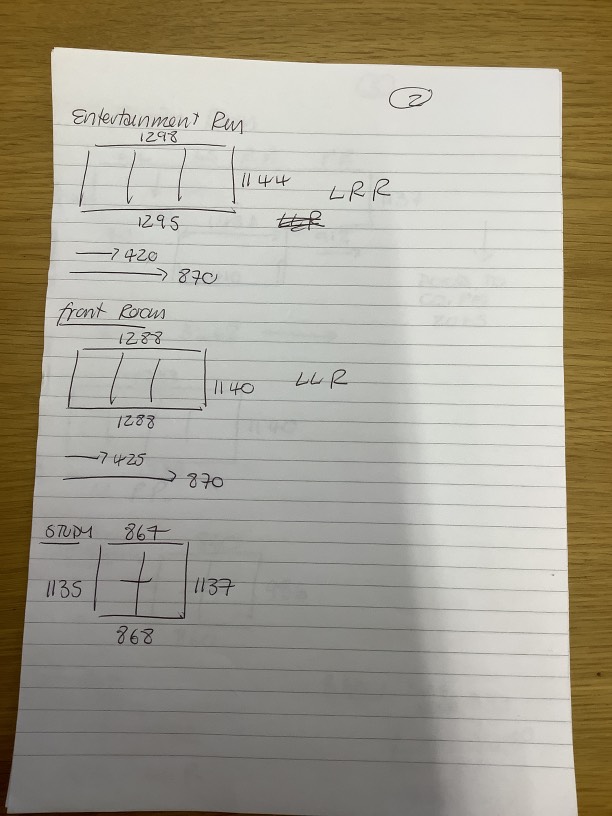 2
Entertainment Rm
1298
1144
LRR
1295
420
870
front Room
1288
1140
LLR
1288
425
870
STUDY
867
1135
1137
868